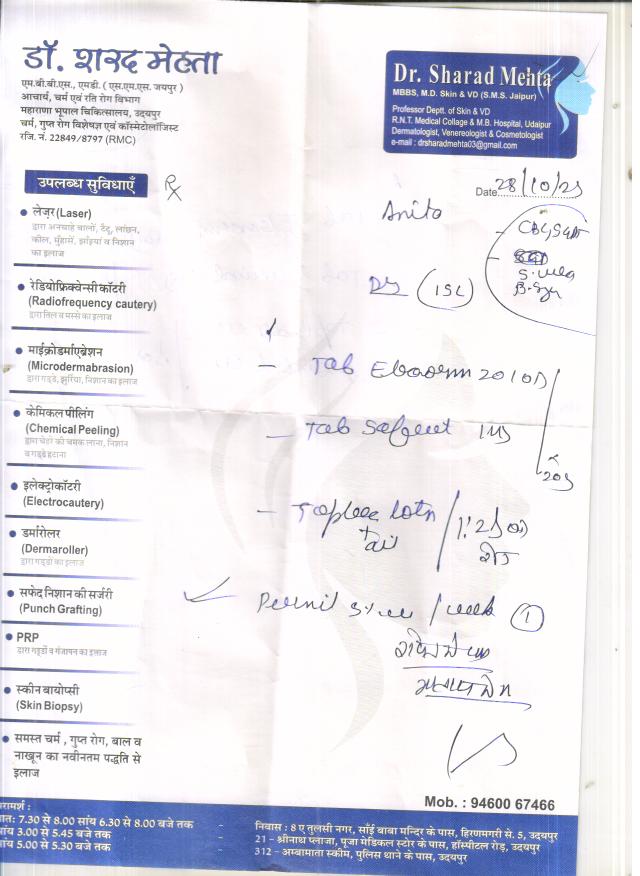 डॉ. शरद मेहता
एम.बी.बी.एस., एमडी. ( एस.एम.एस. जयपुर )
आचार्य, चर्म एवं रति रोग विभाग
महाराणा भूपाल चिकित्सालय, उदयपुर
चर्म, गुप्त रोग विशेषज्ञ एवं कॉस्मेटोलॉजिस्ट
रजि. नं. 22849/8797 (RMC)
Dr. Sharad Mehta
MBBS, M.D. Skin & VD (S.M.S. Jaipur)
Professor Deptt. of Skin & VD
R.N.T. Medical Collage & M.B. Hospital, Udaipur
Dermatologist, Venereologist & Cosmetologist
e-mail : drsharadmehta03@gmail.com
उपलब्ध सुविधाएँ
Date 28/10/25
Anita
• लेज़र (Laser)
द्वारा अनचाहे बालों, टैटू, लांछन,
कील, मुँहासे, झाइयां व निशान
का इलाज
• रेडियोफ्रिक्वेन्सी कॉटरी
(Radiofrequency cautery)
द्वारा तिल व मस्से का इलाज
• माईक्रोडर्माएब्रेशन
(Microdermabrasion)
द्वारा गड्डे, झुर्रिया, निशान का इलाज
• केमिकल पीलिंग
(Chemical Peeling)
द्वारा चेहरे की चमक लाना, निशान
व गड्ढे हटाना
• इलेक्ट्रोकॉटरी
(Electrocautery)
• डर्मारोलर
(Dermaroller)
द्वारा गड्डों का इलाज
• सफेद निशान की सर्जरी
(Punch Grafting)
• PRP
द्वारा गड्डों व गंजापन का इलाज
• स्कीन बायोप्सी
(Skin Biopsy)
• समस्त चर्म , गुप्त रोग, बाल व
नाखून का नवीनतम पद्धति से
इलाज
- Tab 20 1 OD
- Tab
lotn
/ week (1)
Mob. : 94600 67466
परामर्श :
प्रात: 7.30 से 8.00 सांय 6.30 से 8.00 बजे तक -
सांय 3.00 से 5.45 बजे तक -
सांय 5.00 से 5.30 बजे तक -
निवास : 8 ए तुलसी नगर, साँई बाबा मन्दिर के पास, हिरणमगरी से. 5, उदयपुर
21 - श्रीनाथ प्लाजा, पूजा मेडिकल स्टोर के पास, हॉस्पीटल रोड़, उदयपुर
312 - अम्बामाता स्कीम, पुलिस थाने के पास, उदयपुर